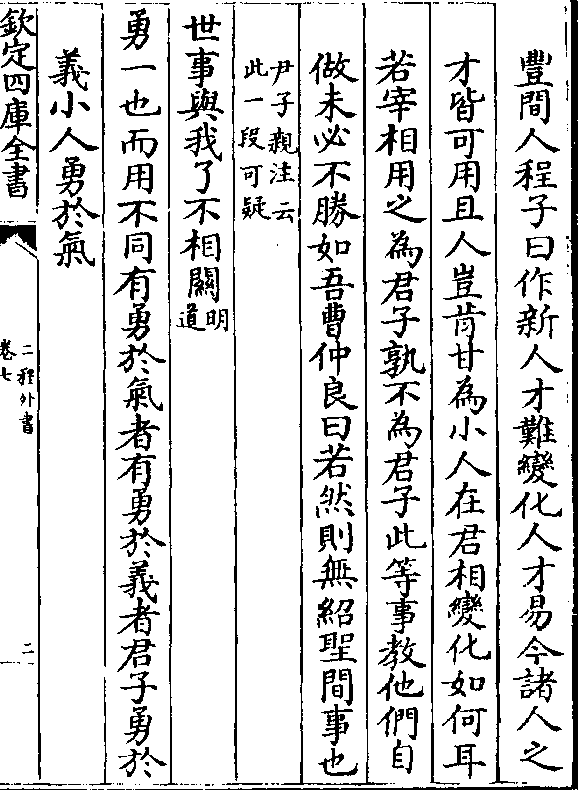 豐間人程子曰作新人才難變化人才易今諸人之
才皆可用且人豈肯甘為小人在君相變化如何耳
若宰相用之為君子孰不為君子此等事教他們自
做未必不勝如吾曹仲良曰若然則無紹聖間事也
尹子親注云
此一段可疑
世事與我了不相關明道
勇一也而用不同有勇於氣者有勇於義者君子勇於
義小人勇於氣
欽定四庫全書
二程外書
卷七
二